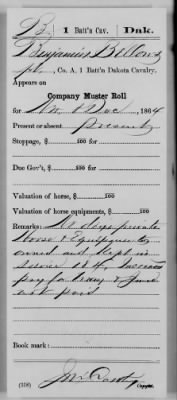 B | 1 Batt'n Cav. | Dak.
Benjamin Bellows
pt., Co. A, 1 Batt'n Dakota Cavalry.
Appears on
Company Muster Roll
for Nov & Dec, 1864
Present or absent Present
Stoppage, $ 100 for
Due Gov't, $ 100 for
Valuation of horse, $ 100
Valuation of horse equipments, $ 100
Remarks: days private
Horse & Equipments
owned and kept in
service
pay for
not paid
Book mark:
(358) Copyist.